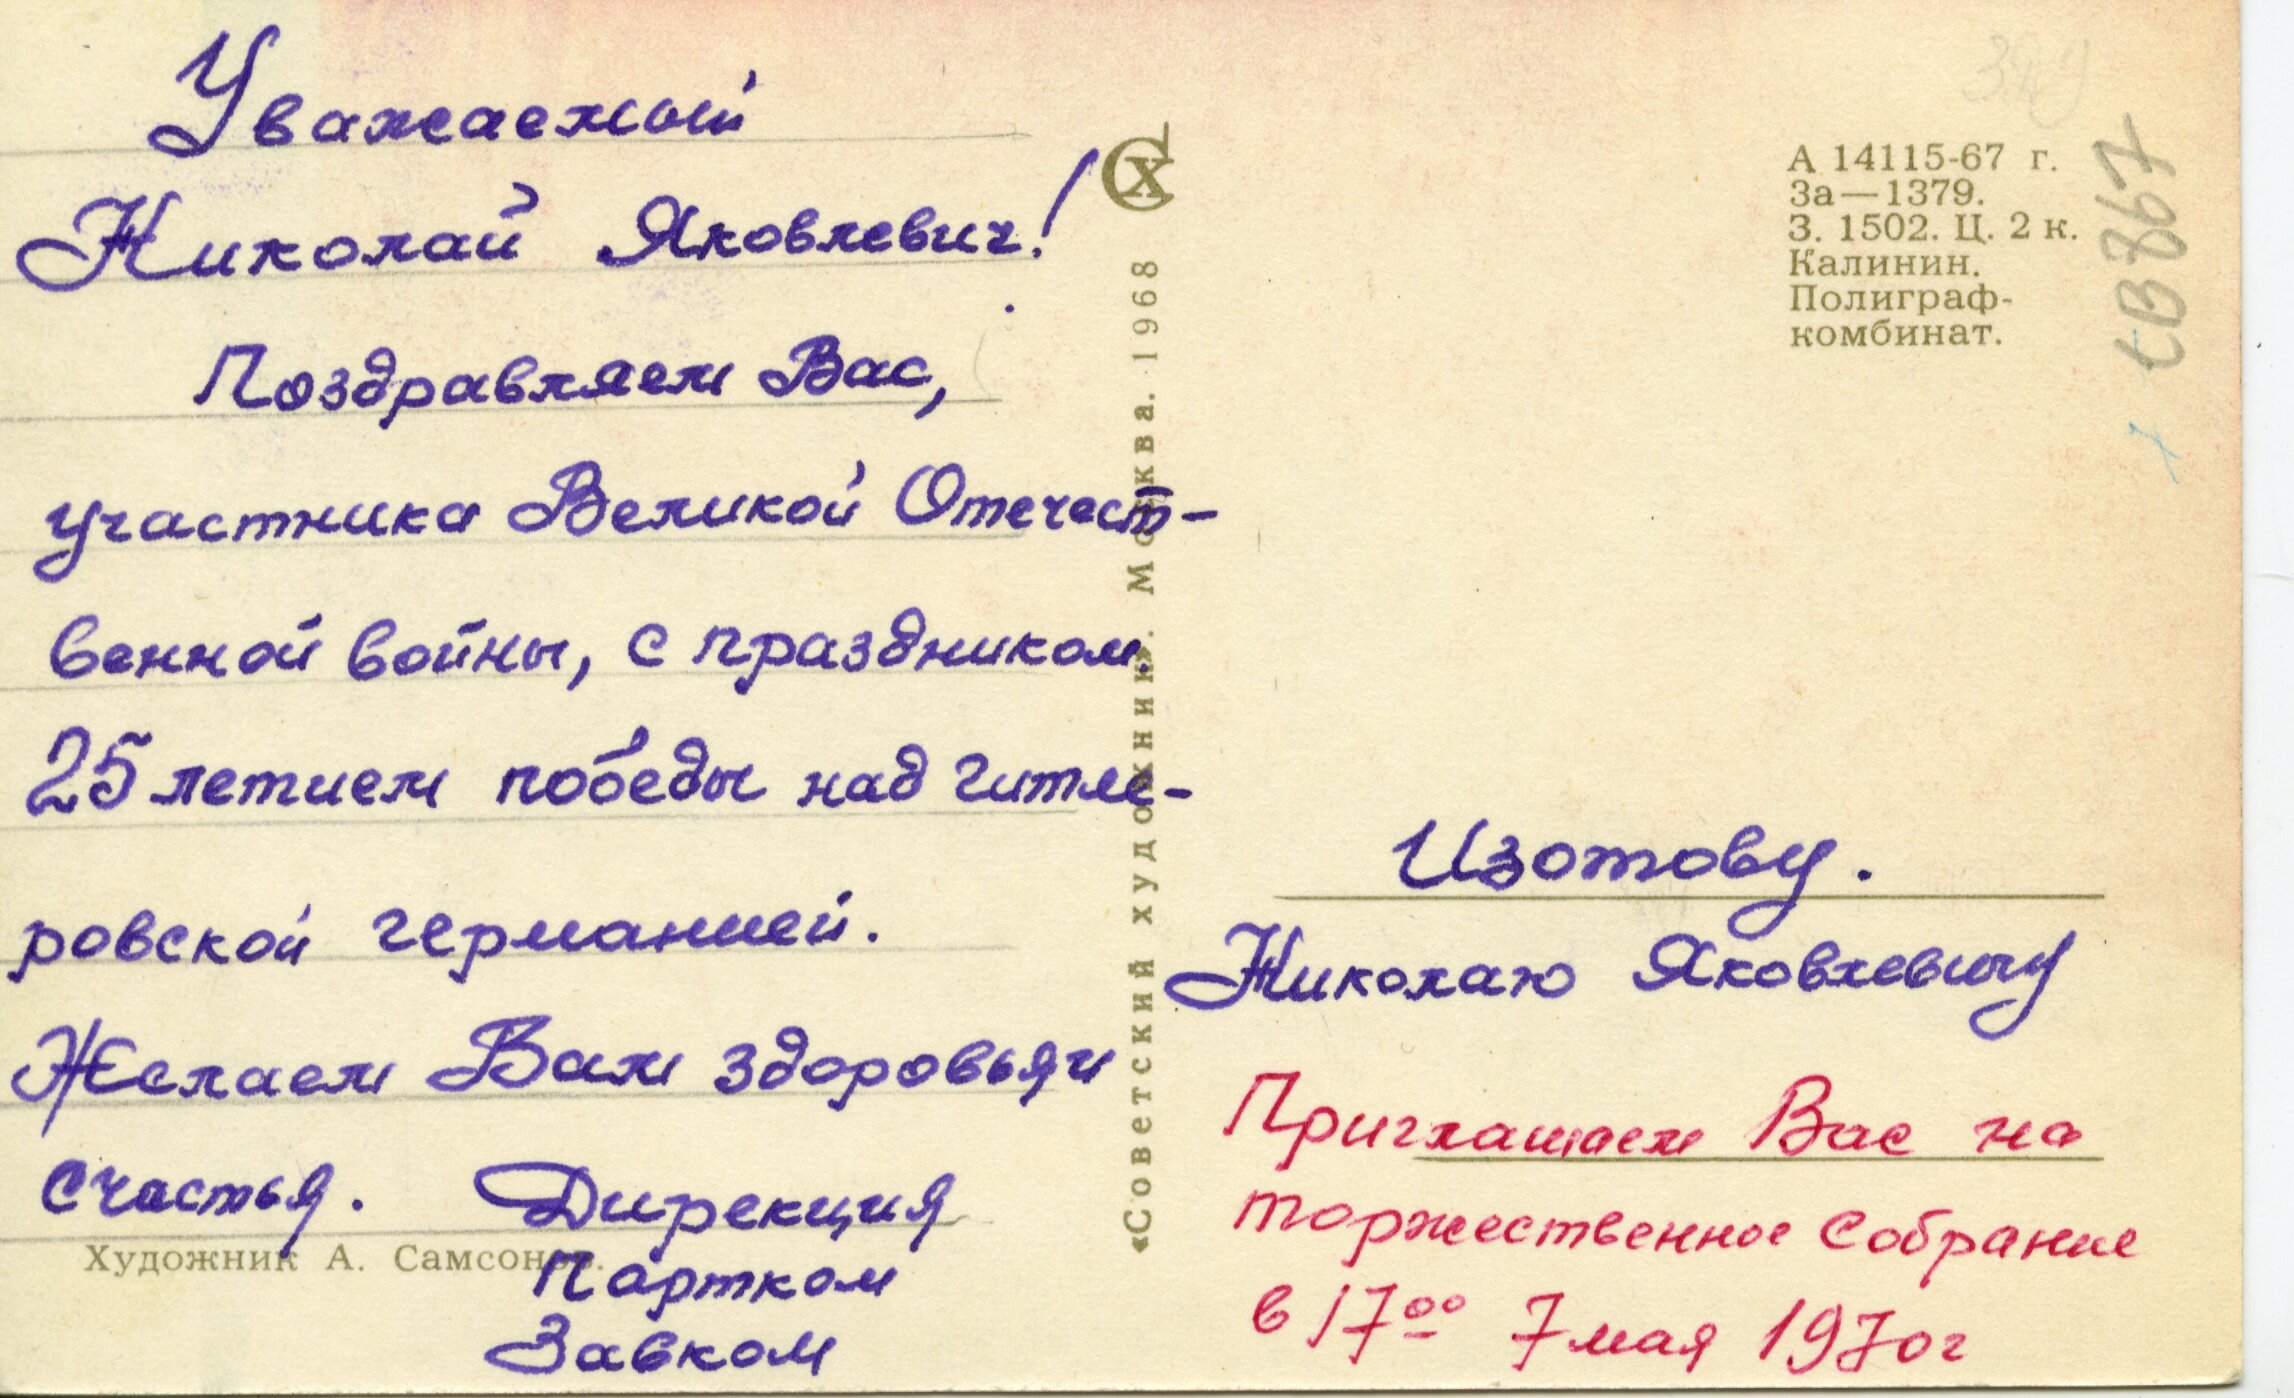 Уважаемый
Николай Яковлевич!
Поздравляем Вас,
участника Великой Отечест-
венной войны, с праздником
25 летием победы над гитле-
ровской германией.
Желаем Вам здоровья и
счастья. Дирекция
Партком
Завком
Художник А. Самсонов.
«Советский художник». Москва. 1968
СХ
А 14115-67 г.
За—1379.
З. 1502. Ц. 2 к.
Калинин.
Полиграф-
комбинат.
Изотову.
Николаю Яковлевичу
Приглашаем Вас на
торжественное собрание
в 17⁰⁰ 7 мая 1970г